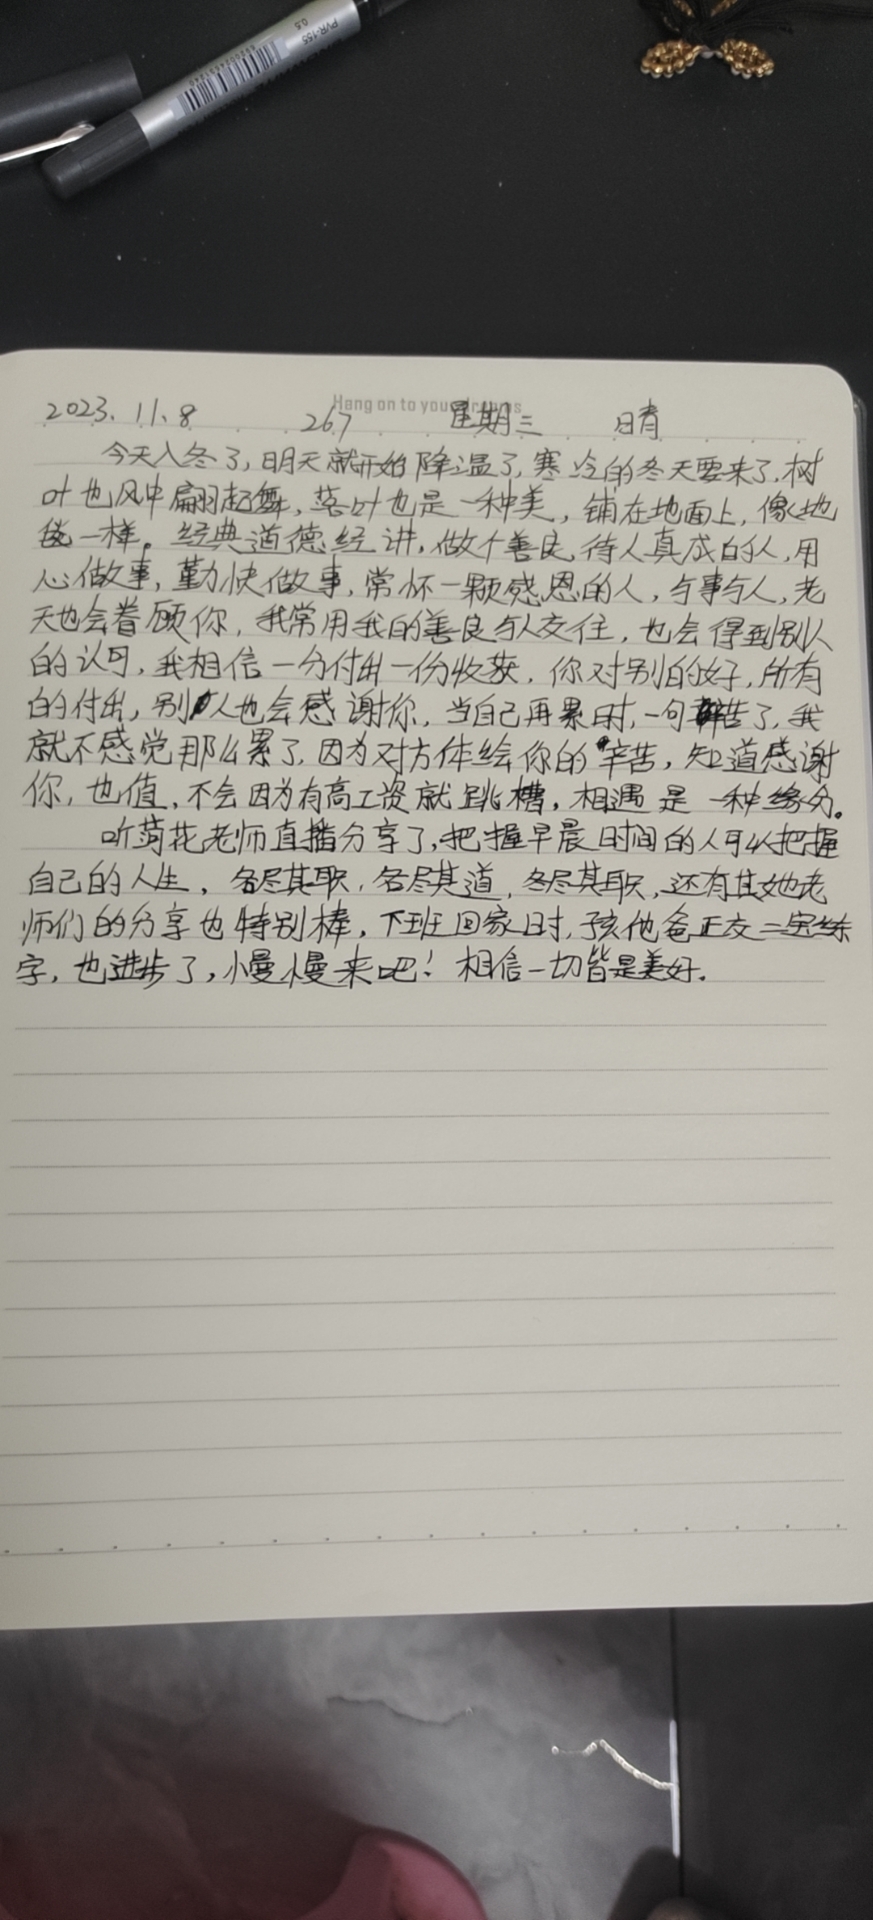 PVR-155 0.5
Hang on to your dreams
2023.11.8 267 星期三 晴
今天入冬了,明天就开始降温了,寒冷的冬天要来了,树
叶也风中翩翩起舞,落叶也是一种美,铺在地面上,像地
毯一样。经典道德经讲,做个善良,待人真成的人,用
心做事,勤快做事,常怀一颗感恩的人,与事与人,老
天也会眷顾你,我常用我的善良与人交往,也会得到别人
的认可,我相信一分付出一份收获,你对别的好,所有
的付出,别人也会感谢你,当自己再累时,一句辛苦了,我
就不感觉那么累了,因为对方体绘你的辛苦,知道感谢
你,也值,不会因为有高工资就跳槽,相遇是一种缘分。
听菊花老师直播分享了,把握早晨时间的人可以把握
自己的人生,各尽其职,各尽其道,冬尽其职,还有其她老
师们的分享也特别棒,下班回家时,孩他爸正在练
字,也进步了,小慢慢来吧!相信一切皆是美好.